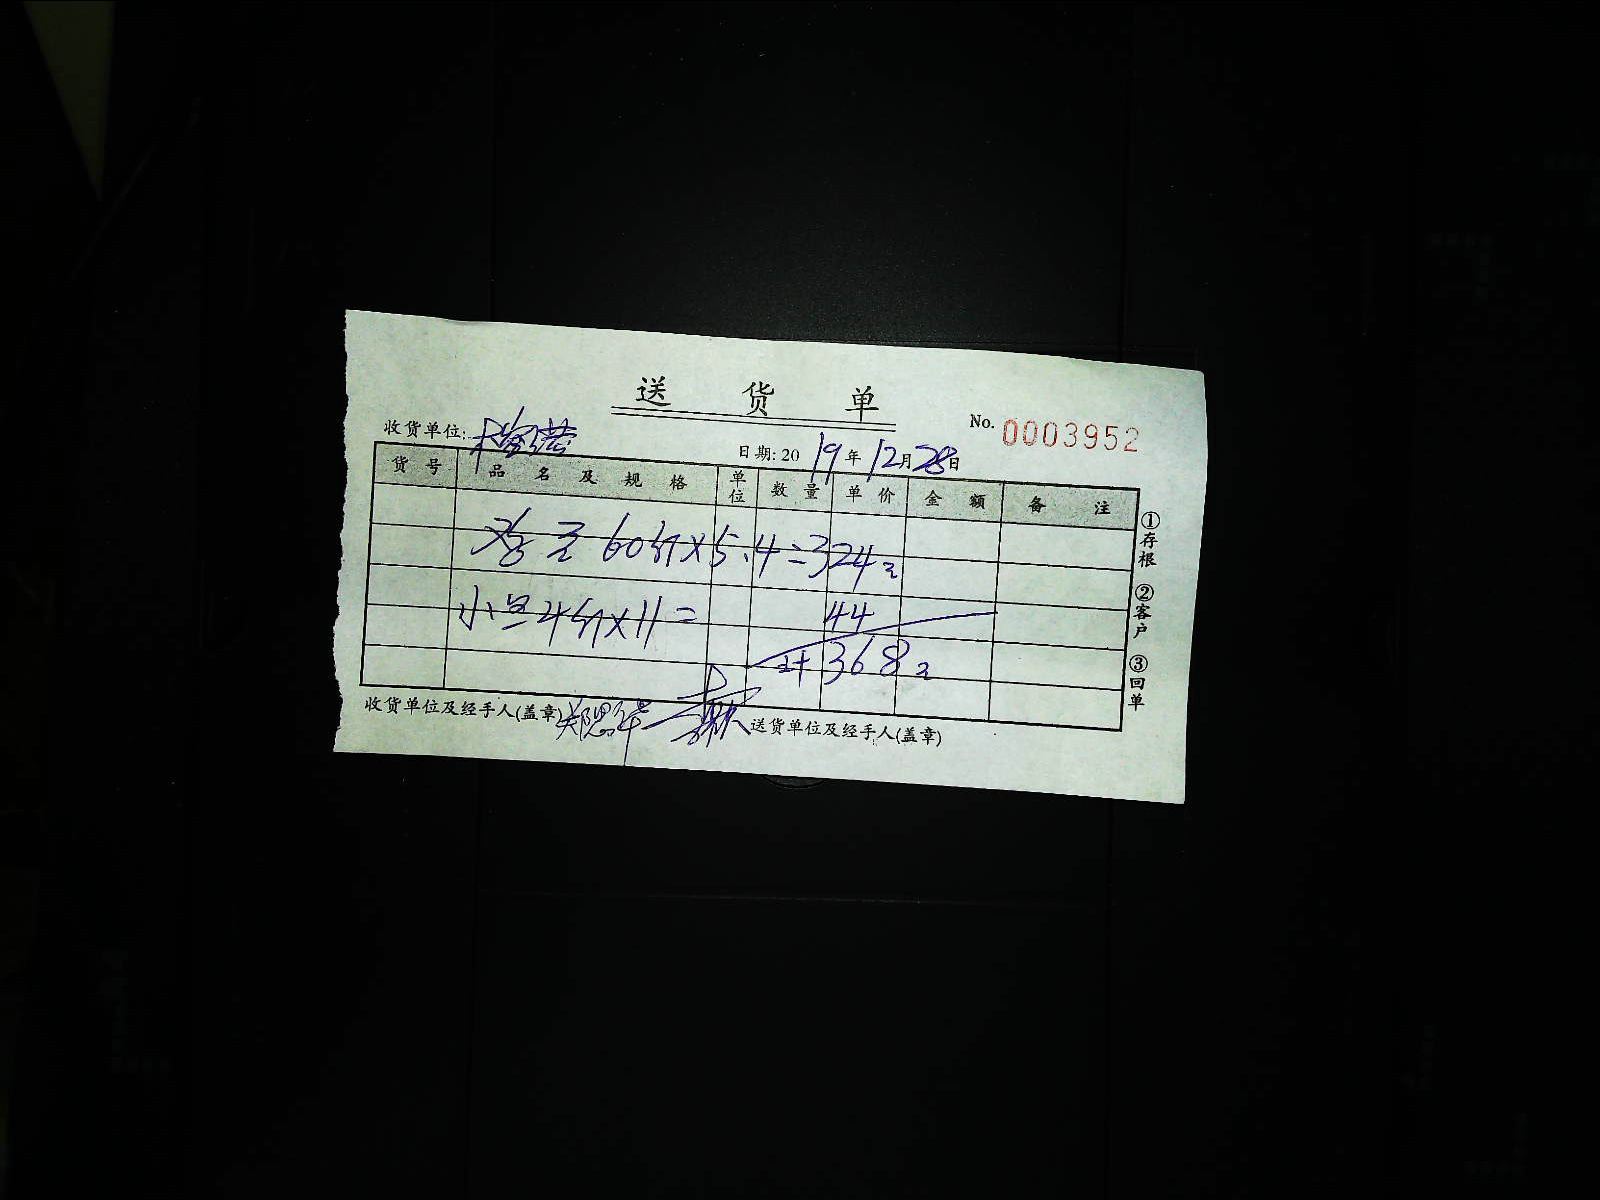 送货单
No. 0003952
收货单位:
日期: 2019年12月28日
货号 品名及规格 单位 数量 单价 金额 备注
60斤×5.4=324元
小 4斤×11= 44
计368元
收货单位及经手人(盖章) 送货单位及经手人(盖章)
①存根 ②客户 ③回单